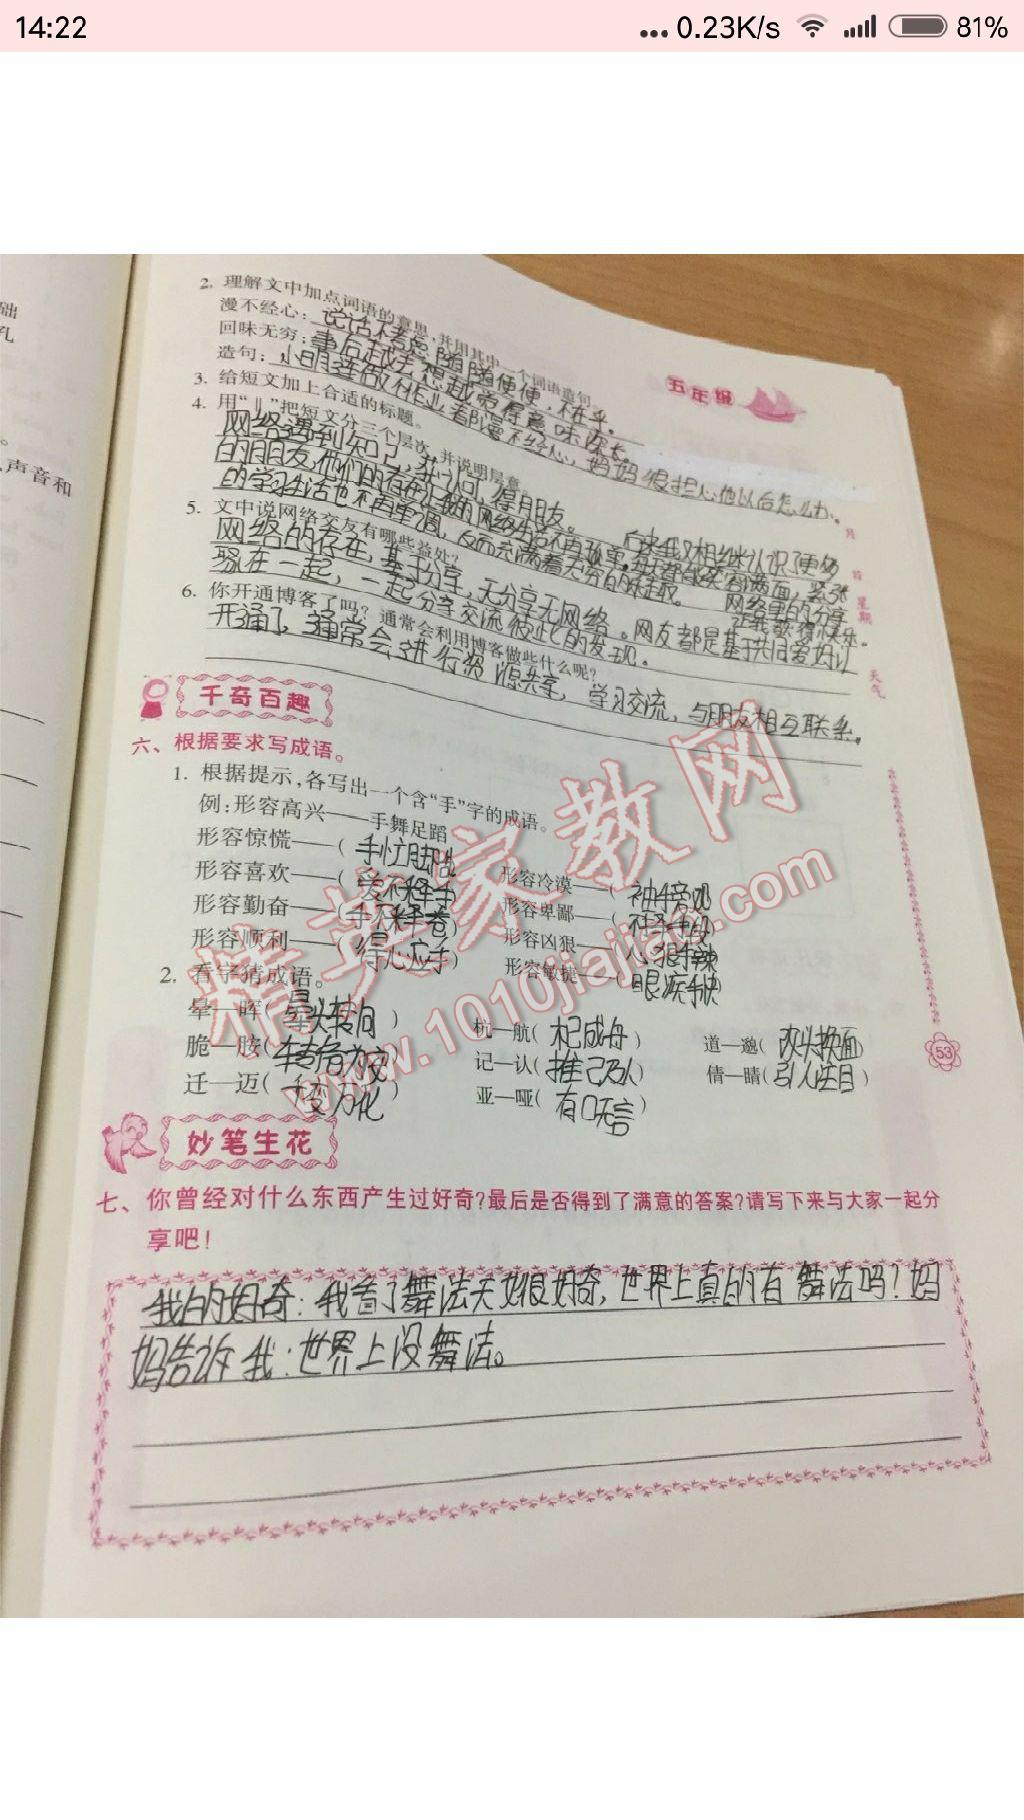 14:22
... 0.23K/s 81%
础
孔
声音和
五年级
2. 理解文中加点词语的意思,并用其中一个词语造句。
漫不经心:说话不考虑,随随便便,不在乎。
回味无穷:事后越去想越觉得意味深长。
造句:小明连做作业都漫不经心,妈妈很担心他以后怎么办。
3. 给短文加上合适的标题。
4. 用“‖”把短文分三个层次,并说明层意。
网络遇到知己,
的学习生活也不再单调,反而充满着天分的乐趣。
5. 文中说网络交友有哪些益处?
网络的存在,基于分享,无分享无网络。网友都是基于共同爱好认
聚在一起,一起分享交流彼此的发现。
6. 你开通博客了吗?通常会利用博客做些什么呢?
开通了,通常会进行资源共享,学习交流,与朋友相互联系。
月
日
星期
天气
千奇百趣
六、根据要求写成语。
1. 根据提示,各写出一个含“手”字的成语。
例:形容高兴——手舞足蹈
形容惊慌——(手忙脚乱
形容喜欢——(爱不释手
形容冷漠——(袖手旁观
形容勤奋——(手不释卷)
形容卑鄙——(不择手段
形容顺利——(得心应手)
形容凶狠——(心狠手辣
形容敏捷——(眼疾手快
2. 看字猜成语。
晕—晖(晕头转向)
杭—航(木已成舟)
道—邈(改头换面)
脆—胺(转危为安)
记—认(推己及人)
倩—睛(引人注目)
迁—迈(千变万化
亚—哑(有口无言)
53
妙笔生花
七、你曾经对什么东西产生过好奇?最后是否得到了满意的答案?请写下来与大家一起分
享吧!
我的好奇:我看了舞法天女很好奇,世界上真的有舞法吗?妈
妈告诉我:世界上没舞法。
精英家教网
www.1010jiajiao.com